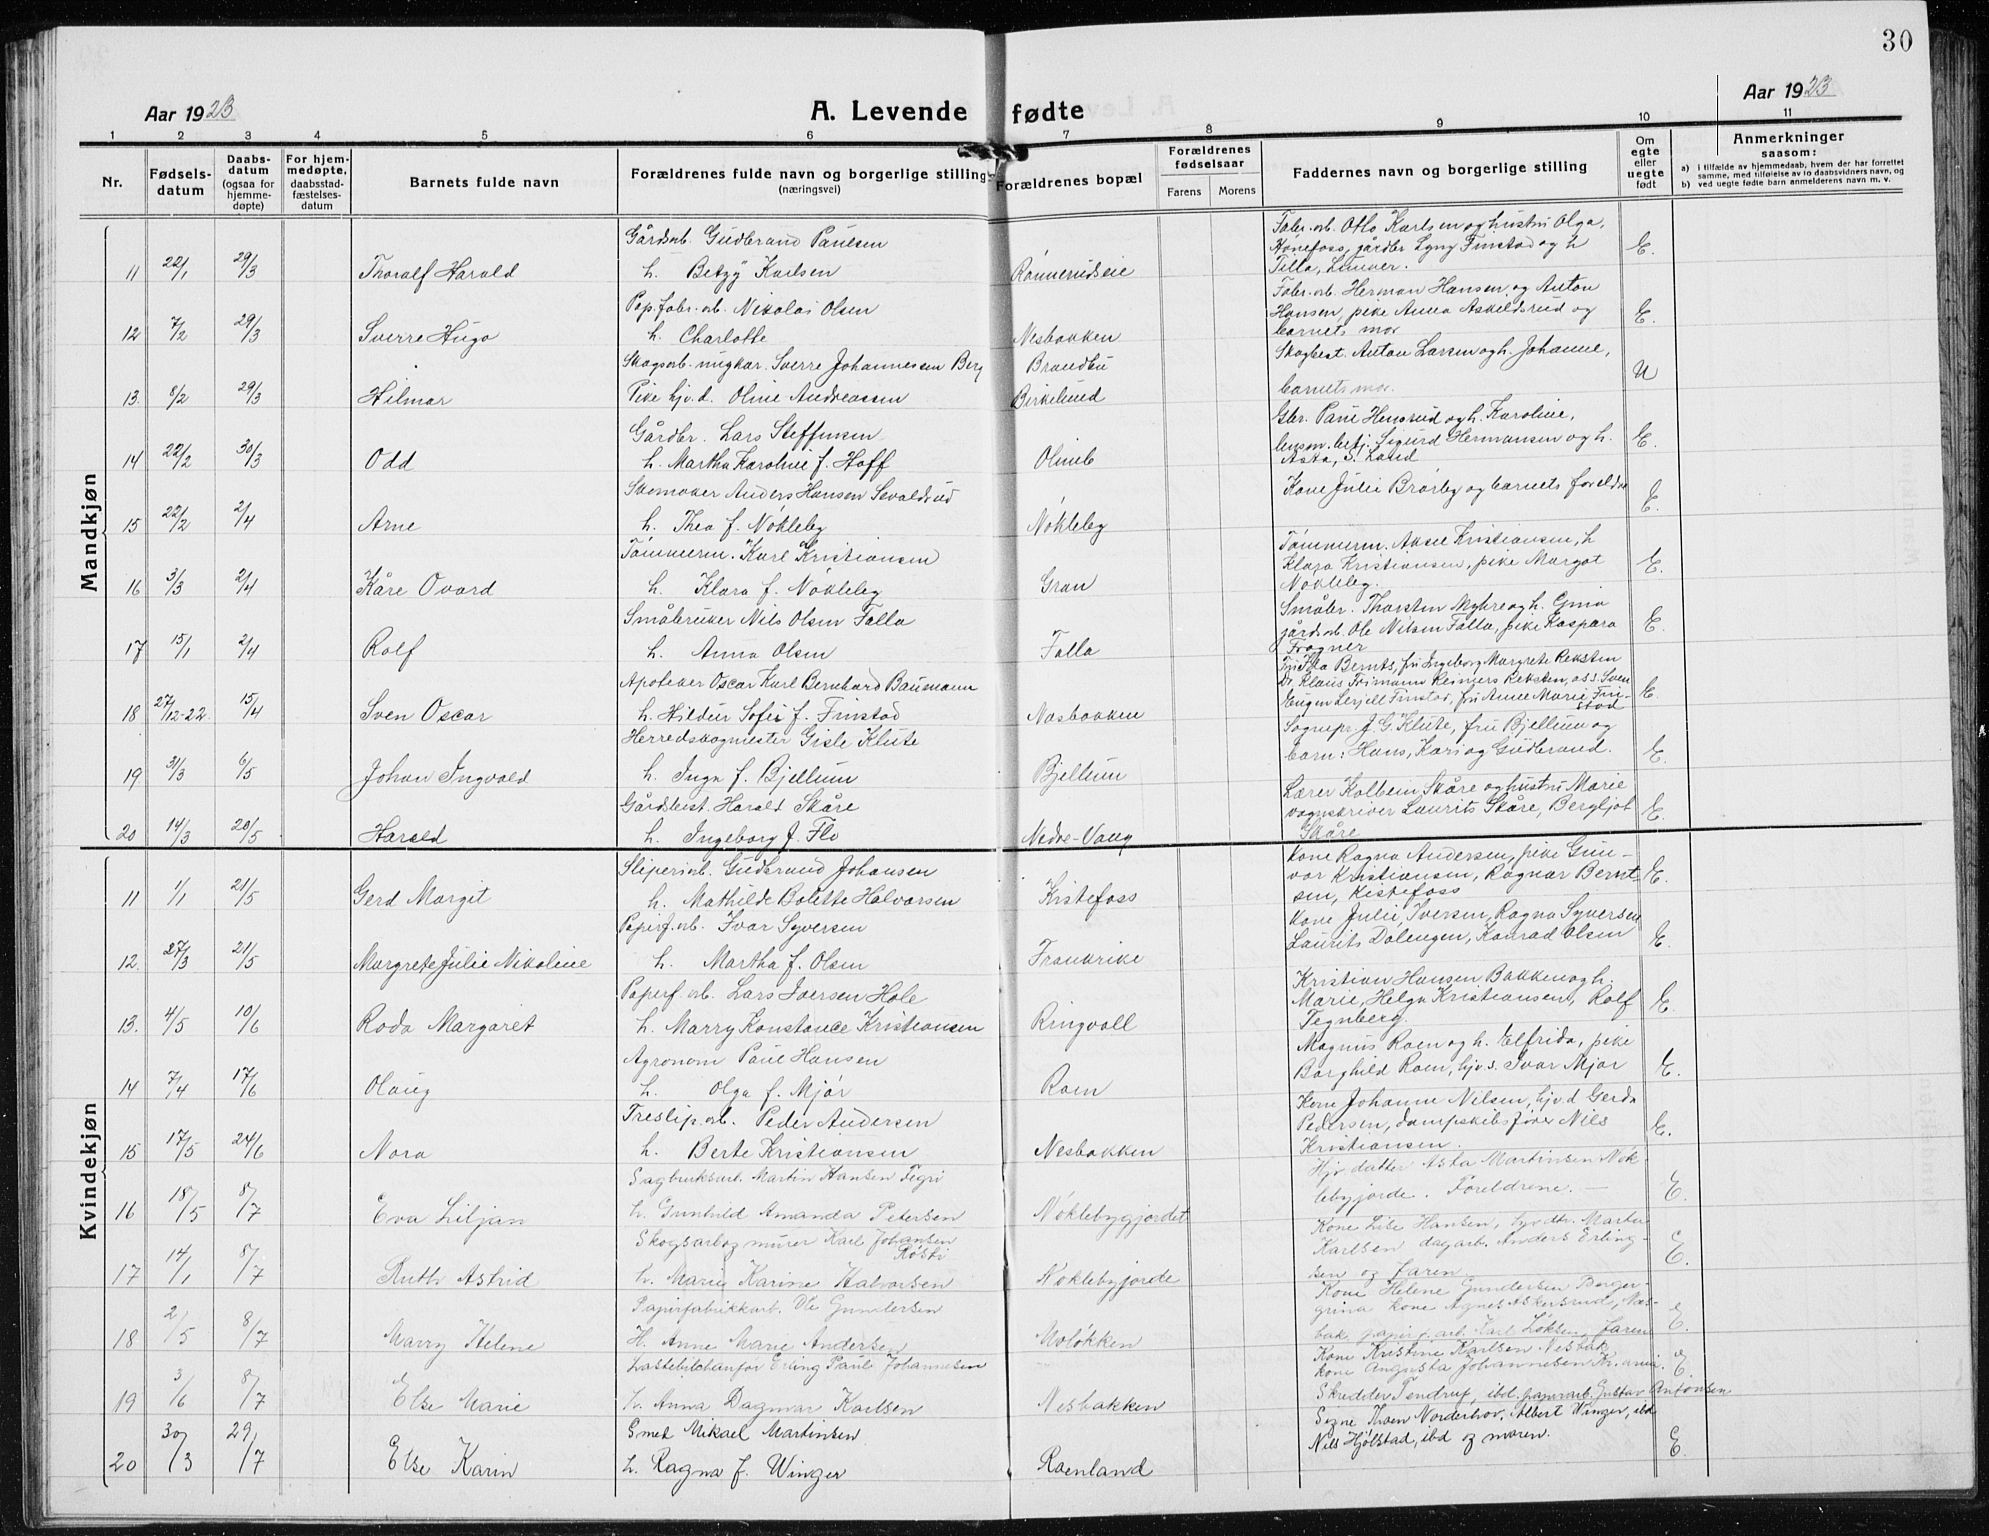 30
Aar 1923 A. Levende fødte Aar 1923
1 2 3 4 5 6 7 8 9 10 11
Nr. Fødsels-datum Daabs-datum (ogsaa for hjemme-døpte) For hjem-medøpte, daabsstad-fæstelses-datum Barnets fulde navn Forældrenes fulde navn og borgerlige stilling (næringsvei) Forældrenes bopæl Forældrenes fødselsaar Farens Morens Faddernes navn og borgerlige stilling Om egte eller uegte født Anmerkninger saasom:
a) i tilfælde av hjemmedaab, hvem der har forrettet samme, med tilføielse av to daabsvidners navn, og
b) ved uegte fødte barn anmelderens navn m. v.
Mandkjøn
Gårdsarb. Gudbrand Paulsen Fabr.arb. Otto Karlsen og hustru Olga,
Hønefoss, gårdbr Lyng Finstad og h
11 22/1 29/3 Thoralf Harald h. Betzy Karlsen Rønnerudseie Tilla, Lunner. E.
Pap.fabr.arb. Nikolai Olsen Fabr.arb. Herman Hansen og Anton
Hansen, pike Anna Askildsrud og
12 7/2 29/3 Sverre Hugo h. Charlotte Nesbakken barnets mor E.
Skogsarb. ungkar. Sverre Johannessen Berg Brandbu Skogbest. Anton Larsen og h. Johanne,
13. 8/2 29/3 Hilmar Pike hjv.d. Oline Andreassen Birkelund barnets mor. U
Gårdbr. Lars Steffensen Gbr. Paul Hensrud og h. Karoline,
bensin.betj. Sigurd Hermansen og h.
14 22/2 30/3 Odd h. Martha Karoline f. Hoff Olineb Asta, S. Land E.
Skomaker Anders Hansen Sevaldsrud Kone Julie Brørby og barnets foreldre
15 22/2 2/4 Arne h. Thea f. Nøkleby Nøkleby E.
Tømmerm. Karl Kristiansen Tømmerm. Aksel Kristiansen, h
Klara Kristiansen, pike Margot
16 3/3 2/4 Kåre Ovard h. Klara f. Nøkleby Gran Nøkleby. E.
Småbruker Nils Olsen Falla Småbr. Thorsten Myhre og h. Gina
gårdsarb. Ole Nilsen Falla, pike Kaspara
17 15/1 2/4 Rolf h. Anna Olsen Falla Frogner E.
Apoteker Oscar Karl Bernhard Baumann Fru Ida Bernts, fru Ingeborg Margrete Reksten
Dr. Klaus Frimann Reimers Reksten, ass. Sven
18 27/12-22 15/4 Sven Oscar h. Hildur Sofie f. Finstad Næsbakken Eugen Finstad, fru Anne Marie Fin-stad E.
Herredskogmester Gisle Klute Sognepr. J. G. Klute, fru Bjellum og
barn: Hans, Kari og Gudbrand.
19 31/3 6/5 Johan Ingvald h. Inga f. Bjellum Bjellum E.
Gårdsbest. Harald Skåre Lærer Kolbein Skåre og hustru Marie
vognskriver Laurits Skåre, Bergljot
20 14/3 20/5 Harald h. Ingeborg f. Flo Nedre-Vang Skåre E.
Kvindekjøn
Sliperiarb. Gudbrand Johansen Kone Ragna Andersen, pike Gun-
vor Kristiansen, Ragnar Bernt-
11 1/1 21/5 Gerd Margit h. Mathilde Bolette Halvorsen Kistefoss sen, Kistefoss E.
Papirf.arb. Ivar Syversen Kone Julie Iversen, Ragna Syversen
Laurits Dølengen, Konrad Olsen
12. 27/3 21/5 Margrete Julie Nikoline h. Martha f. Olsen Frankrike E.
Papirf.arb. Lars Iversen Hole Kristian Hansen Bakken og h.
Marie, Helga Kristiansen, Rolf
13. 4/5 10/6 Roda Margaret h. Marry Konstance Kristiansen Ringvoll Tegnberg. E.
Agronom Paul Hansen Magnus Roen og h. Elfrida, pike
Borghild Roen, hjv.s. Ivar Mjør
14 7/4 17/6 Olaug h. Olga f. Mjør Roen E.
Treslip.arb. Peder Andersen Kone Johanne Nilsen, hjv.d Gerda
Pedersen, dampskibsfører Nils
15 17/5 24/6 Nora h. Berte Kristiansen Nesbakken Kristiansen. E.
Sagbruksarb. Martin Hansen Tegri Hjv. datter Asta Martinsen Nøk-
lebyjorde. Foreldrene. —
16 18/5 8/7 Eva Liljan h. Gunhild Amanda Petersen Nøklebygjordet E.
Skogsarb og murer Karl Johansen Røsti Kone Lise Hansen, hjv. dtr. Marta
Karlsen dagarb. Anders Erling-
17 14/1 8/7 Ruth Astrid h. Marie Karine Halvorsen Nøklebyjorde sen og faren E.
Papirfabrikkarb. Ole Gundersen Kone Helene Gundersen Berger-
grina kone Agnes Askersrud, Næs-
18 2/5 8/7 Marry Helene H. Anne Marie Andersen Moløkken bak, papirf.arb. Karl Løksen, faren E.
Lastebilchaufør Erling Paul Johannesen Kone Kristine Karlsen Nesbak
kone Augusta Johannesen
19 3/6 8/7 Else Marie h. Anna Dagmar Karlsen Nesbakken Skredder Tendruf, ibd. papirarb. Gustav Antonsen E
Smed Mikael Martinsen Signe Thoen Norderhov, Albert Winger, ibd
Nils Hjølstad, ibd og moren.
20 30/3 29/7 Else Karin h. Ragna f. Winger Roenland E.